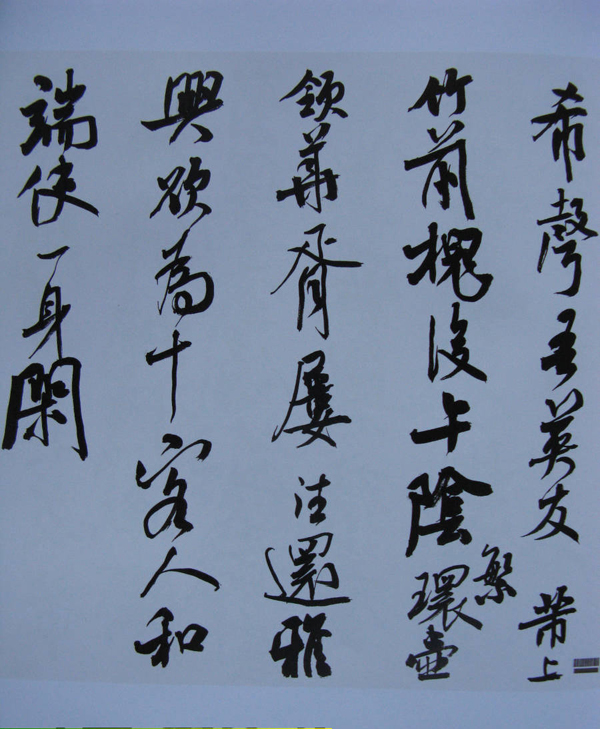 希聲吾英友 芾上
竹前槐後午陰環繁壺
領華胥屢往還雅
興欲為十客人和
端使一身閑